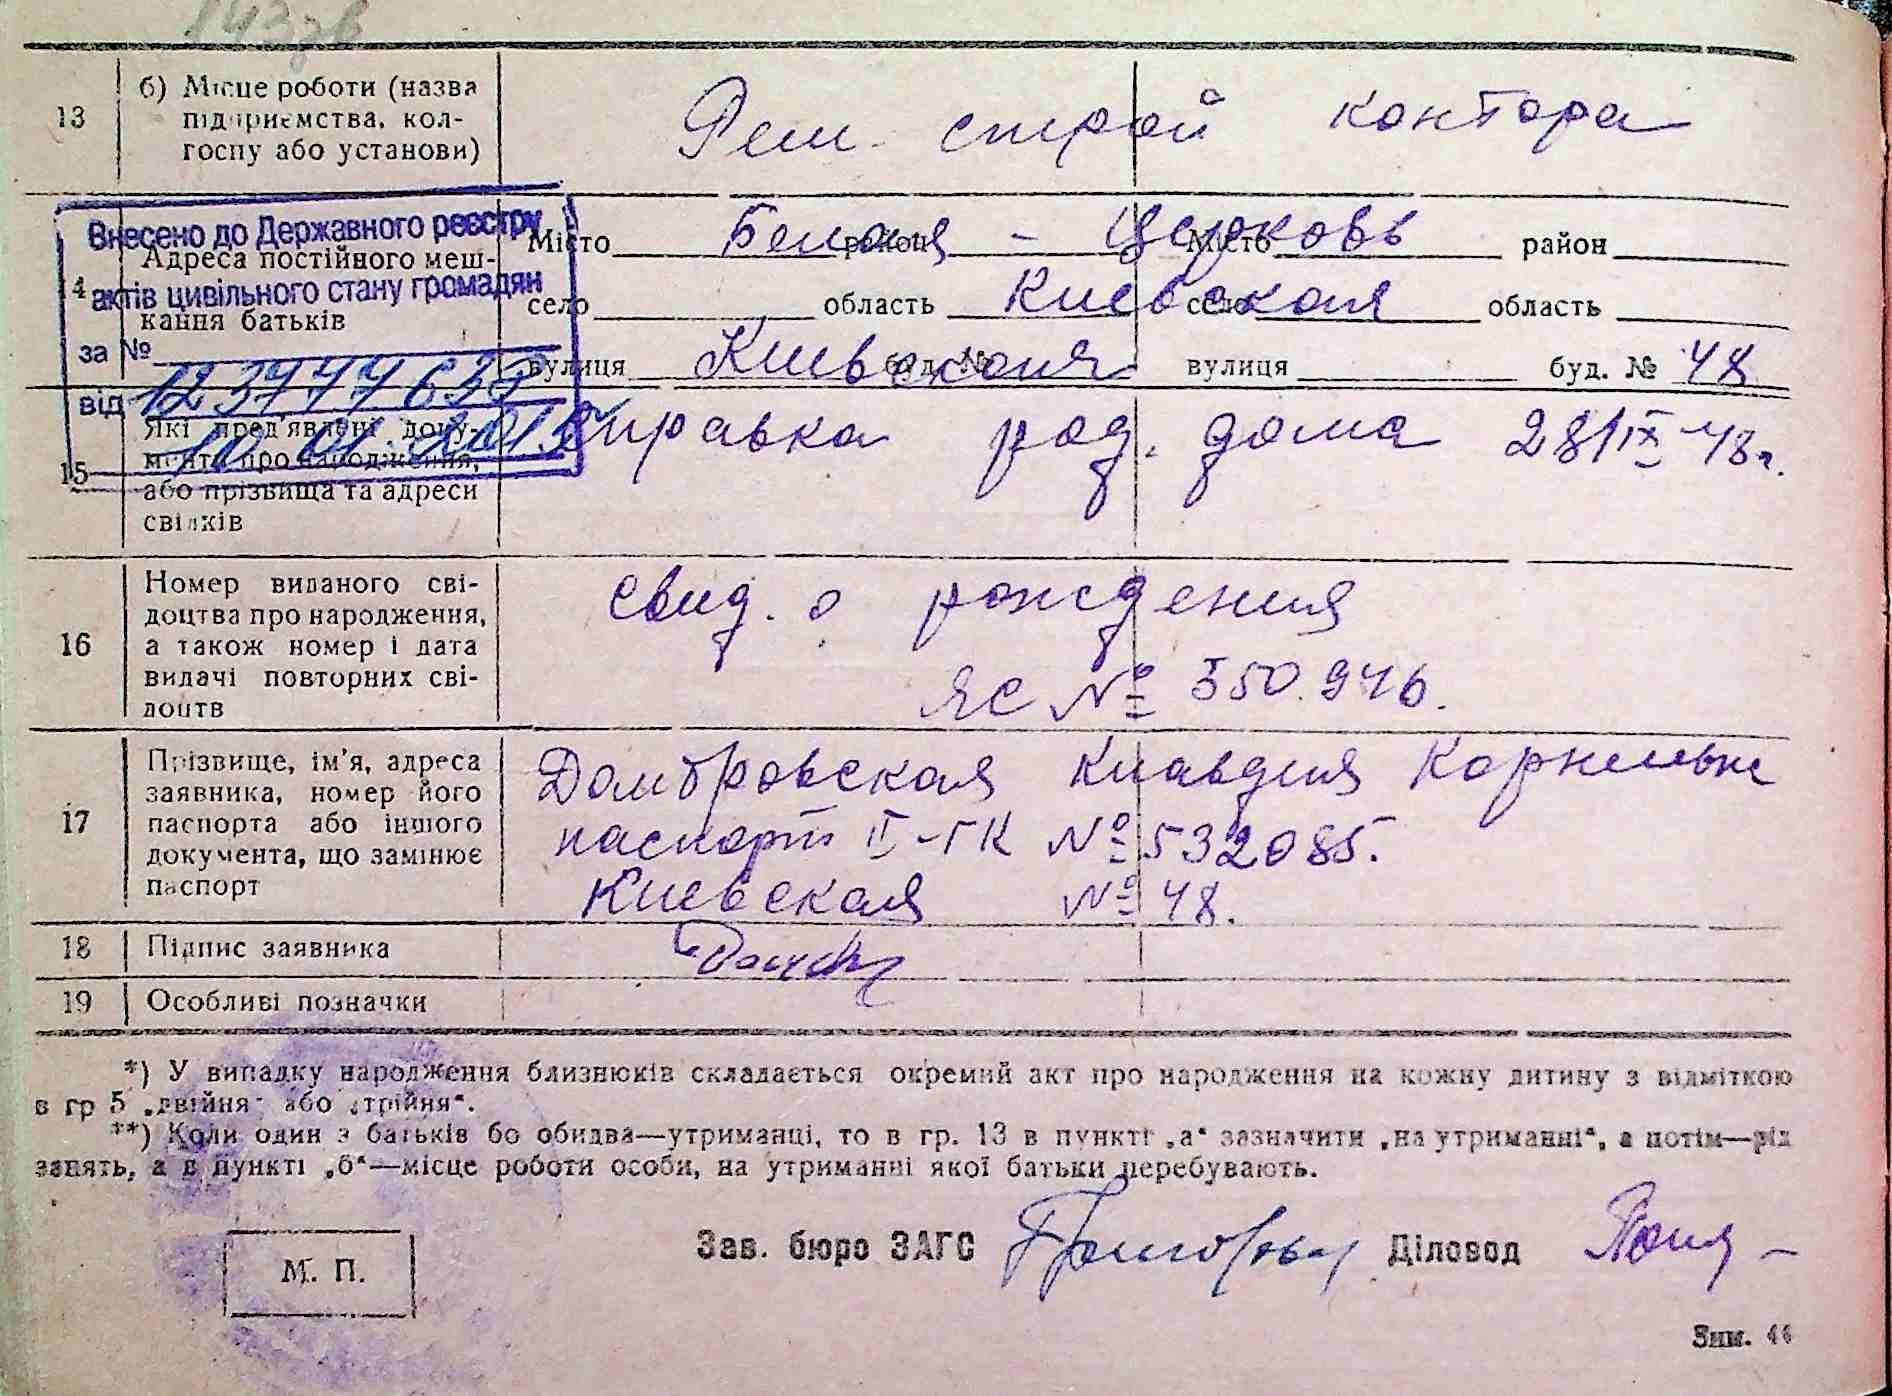 13
б) Місце роботи (назва
підприємства, кол-
госпу або установи)
Рем. строй контора
Внесено до Державного реєстру
актів цивільного стану громадян
за №
123777632
від
14
Адреса постійного меш-
кання батьків
Місто Белая - Церковь район Місто район
село область Киевская село область
вулиця Киевская буд. № вулиця буд. № 48
15
Які пред'явлені доку-
менти про народження,
або прізвища та адреси
свідків
Справка род. дома 28/IX-48г.
16
Номер виданого сві-
доцтва про народження,
а також номер і дата
видачі повторних сві-
доцтв
Свид. о рождения
ЯС № 350.946.
17
Прізвище, ім'я, адреса
заявника, номер його
паспорта або іншого
документа, що замінює
паспорт
Домбровская Клавдия Корнильн
паспорт II-ГК № 532085.
Киевская № 48.
18 Підпис заявника
19 Особливі позначки
*) У випадку народження близнюків складається окремий акт про народження на кожну дитину з відміткою
в гр 5 „двійня" або „трійня".
**) Коли один з батьків бо обидва—утриманці, то в гр. 13 в пункті „а" зазначити „на утриманні", а потім—рід
занять, а в пункті „б"—місце роботи особи, на утриманні якої батьки перебувають.
Зав. бюро ЗАГС Діловод
М. П.
Зим. 44